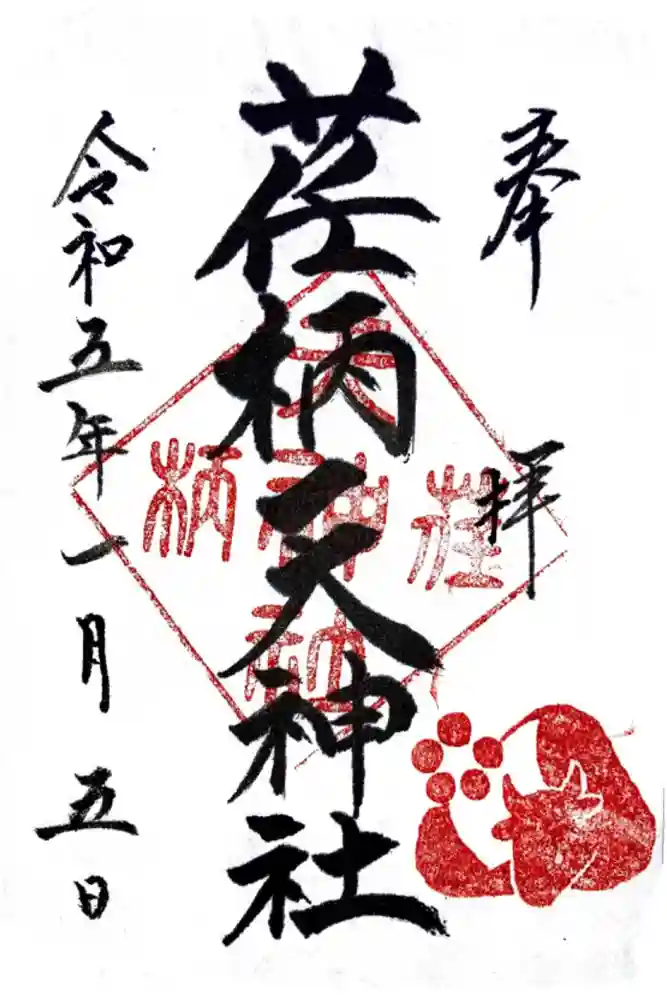 奉拝
荏柄天神社
荏柄天神社
令和五年一月五日